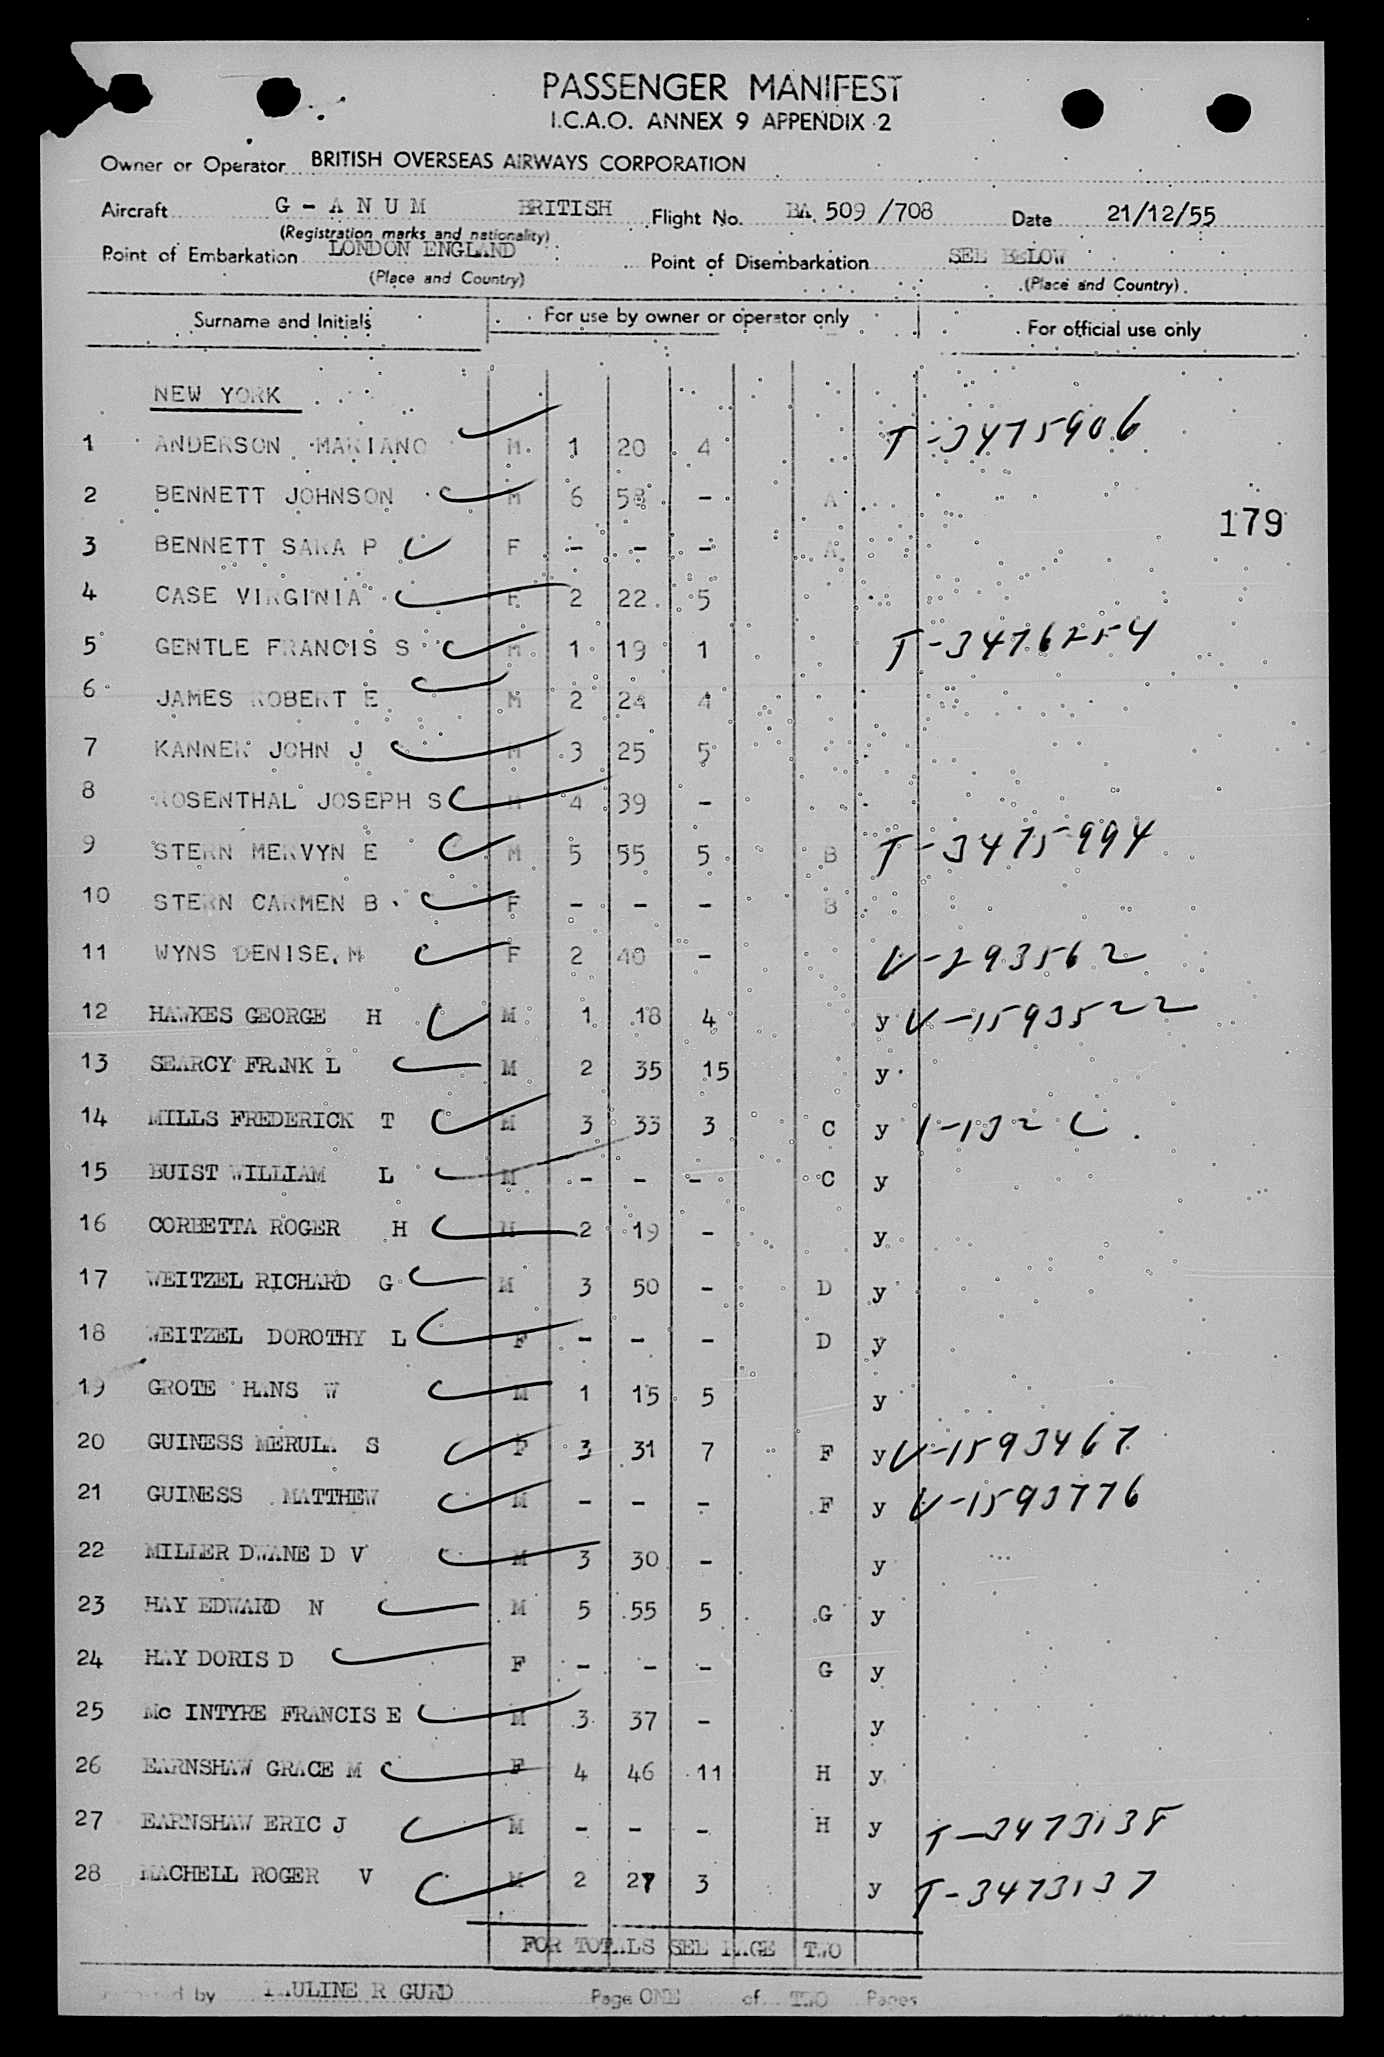 PASSENGER MANIFEST
I.C.A.O. ANNEX 9 APPENDIX 2
Owner or Operator BRITISH OVERSEAS AIRWAYS CORPORATION
Aircraft G - A N U M BRITISH Flight No. BA 509 /708 Date 21/12/55
(Registration marks and nationality)
Point of Embarkation LONDON ENGLAND Point of Disembarkation SEE BELOW
(Place and Country) (Place and Country)
Surname and Initials For use by owner or operator only For official use only
NEW YORK
1 ANDERSON MARIANO M 1 20 4 T-3475906
2 BENNETT JOHNSON M 6 58 - A
179
3 BENNETT SARA P F - - - A
4 CASE VIRGINIA F 2 22 5
5 GENTLE FRANCIS S M 1 19 1 T-3476254
6 JAMES ROBERT E M 2 24 4
7 KANNER JOHN J M 3 25 5
8 ROSENTHAL JOSEPH S M 4 39 -
9 STERN MERVYN E M 5 55 5 B T-3475994
10 STERN CARMEN B F - - - B
11 WYNS DENISE M F 2 40 - V-293562
12 HAWKES GEORGE H M 1 18 4 y V-1593522
13 SEARCY FRANK L M 2 35 15 y
14 MILLS FREDERICK T M 3 33 3 C y
15 BUIST WILLIAM L M - - - C y
16 CORBETTA ROGER H M 2 19 - y
17 WEITZEL RICHARD G M 3 50 - D y
18 WEITZEL DOROTHY L F - - - D y
19 GROTE HANS W M 1 15 5 y
20 GUINESS MERULA S F 3 31 7 F y V-1593467
21 GUINESS MATTHEW M - - - F y V-1593776
22 MILLER DWANE D V M 3 30 - y
23 HAY EDWARD N M 5 55 5 G y
24 HAY DORIS D F - - - G y
25 Mc INTYRE FRANCIS E M 3 37 - y
26 EARNSHAW GRACE M F 4 46 11 H y
27 EARNSHAW ERIC J M - - - H y T-3473138
28 MACHELL ROGER V M 2 27 3 y T-3473137
FOR TOTALS SEE PAGE TWO
by PAULINE R GURD Page ONE of TWO Pages